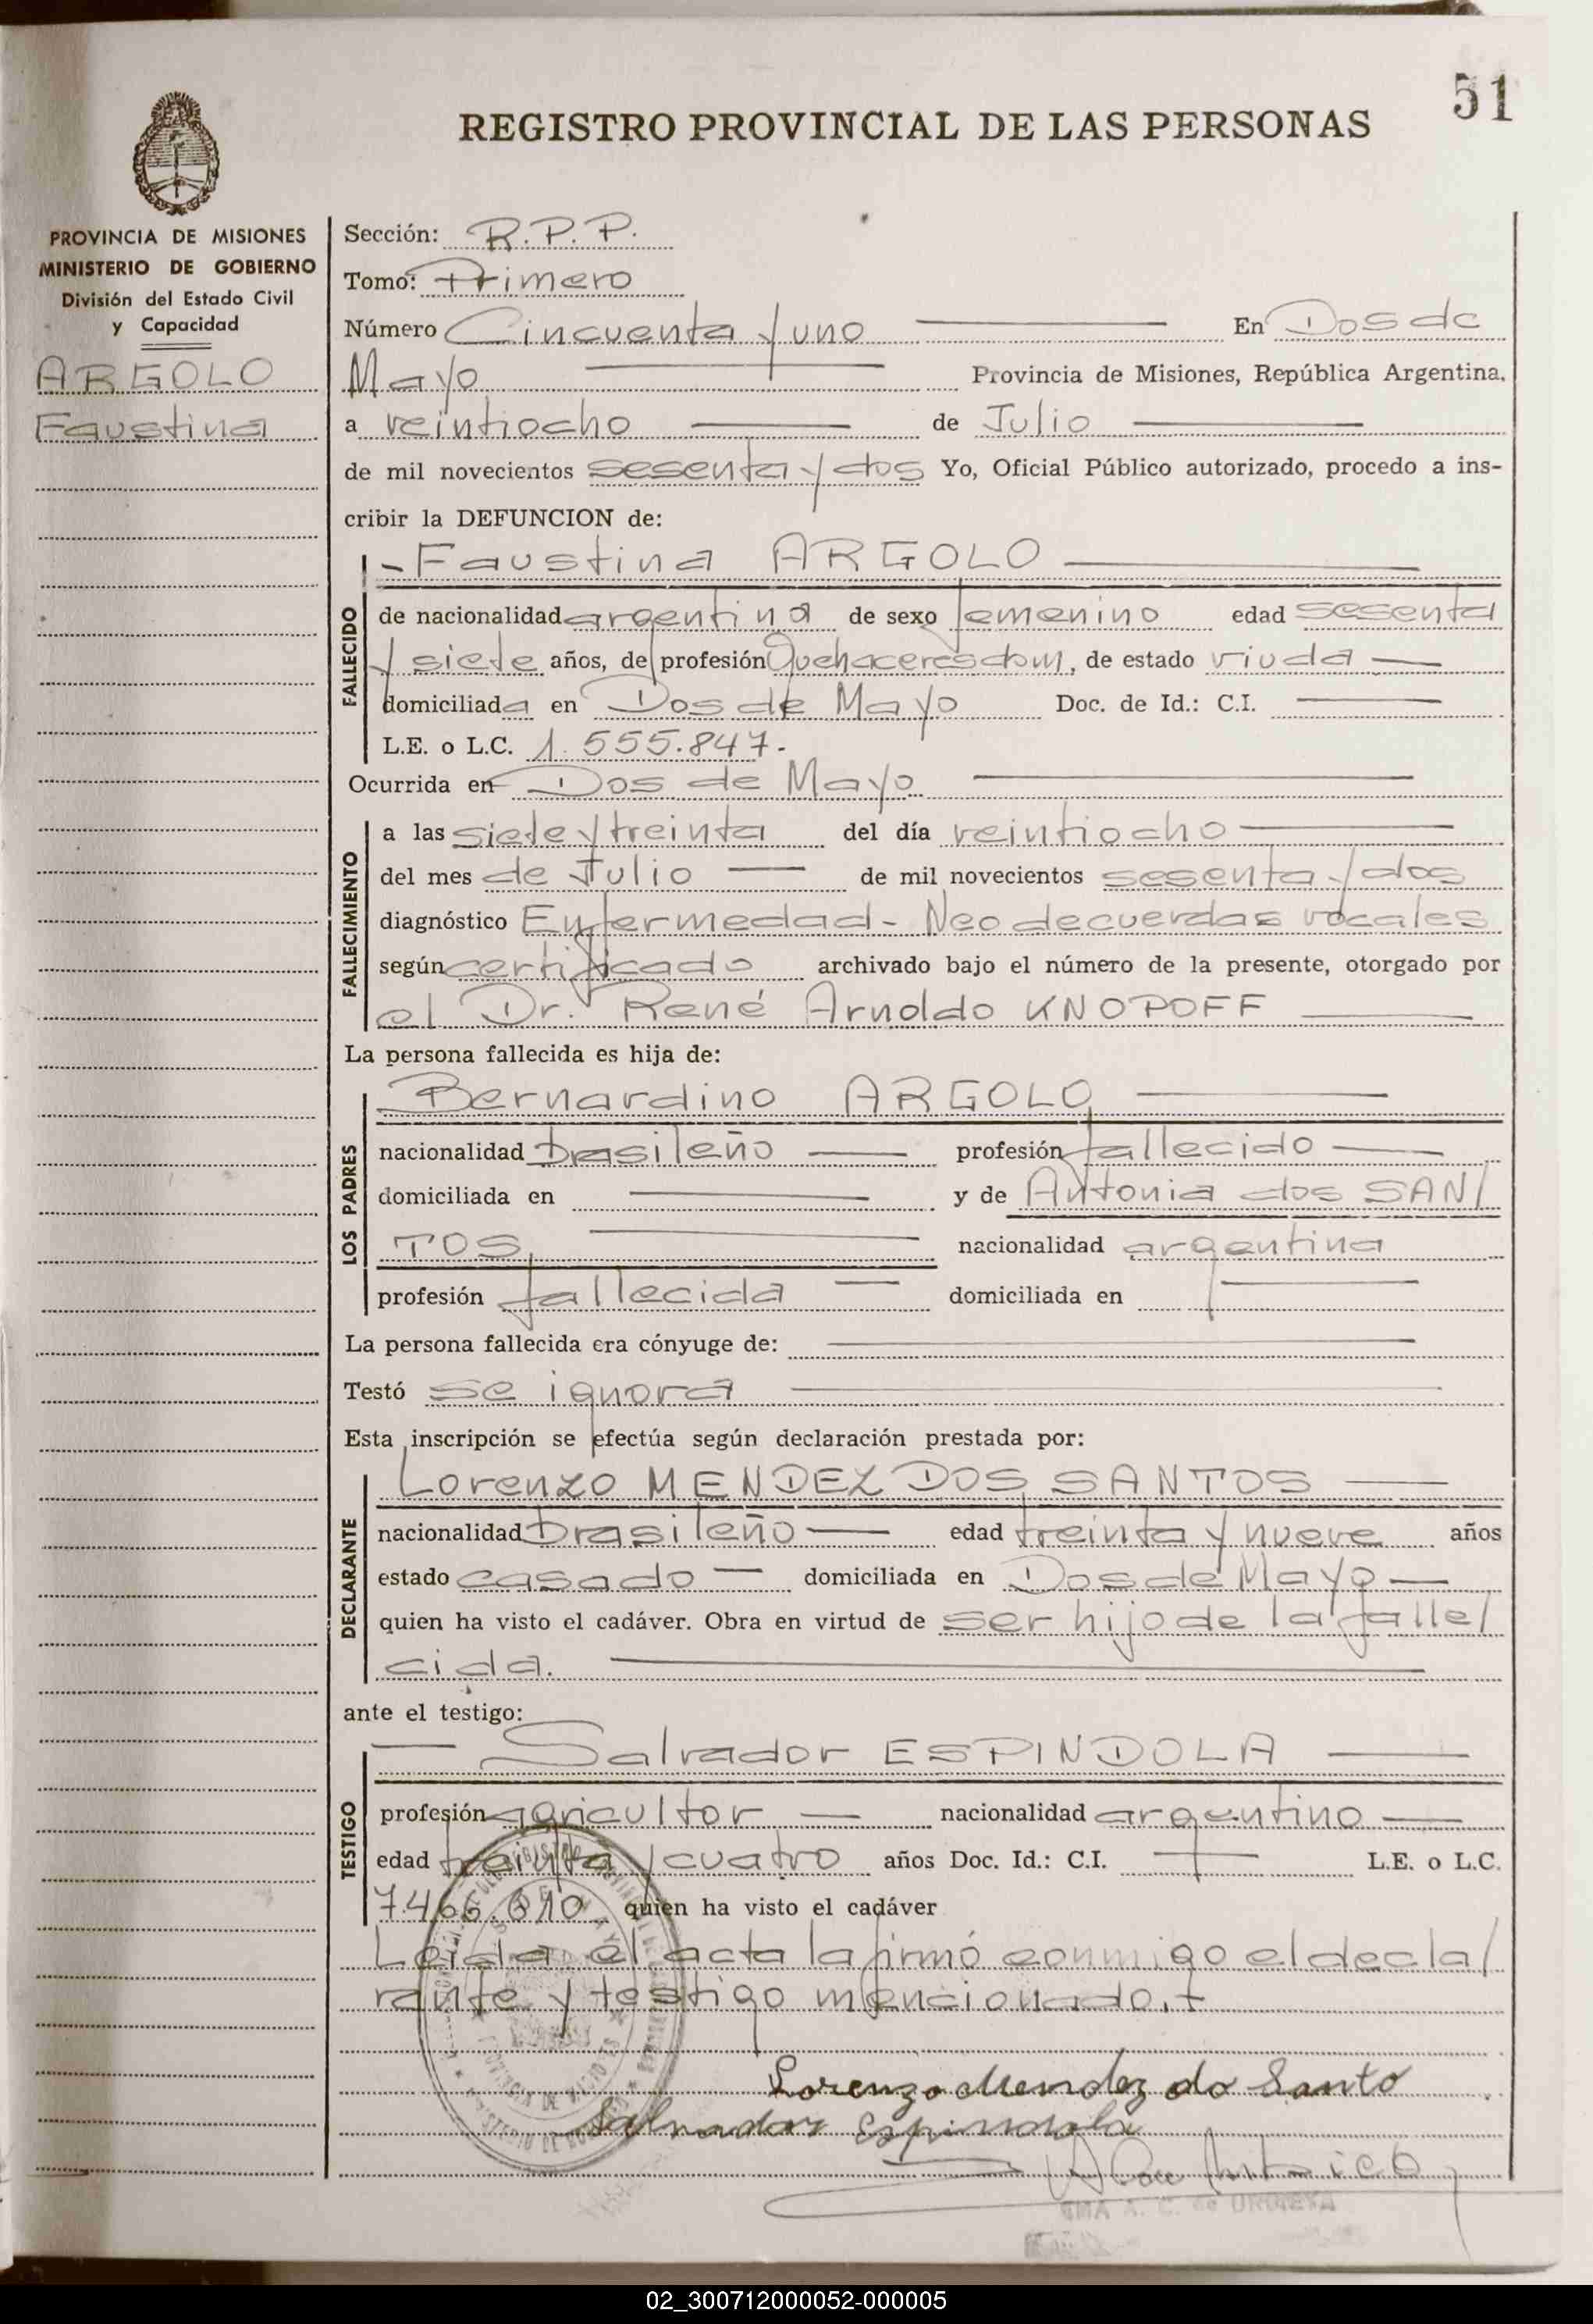 51
REGISTRO PROVINCIAL DE LAS PERSONAS
PROVINCIA DE MISIONES
MINISTERIO DE GOBIERNO
División del Estado Civil
y Capacidad
ARGOLO
Faustina
Sección: R.P.P.
Tomo: Primero
Número Cincuenta y uno En Dos de
Mayo Provincia de Misiones, República Argentina,
a veintiocho de Julio
de mil novecientos sesenta y dos Yo, Oficial Público autorizado, procedo a ins-
cribir la DEFUNCION de:
FALLECIDO
- Faustina ARGOLO
de nacionalidad argentina de sexo femenino edad sesenta
y siete años, de profesión Quehaceres dom, de estado viuda
domiciliada en Dos de Mayo Doc. de Id.: C.I.
L.E. o L.C. 1.555.847.-
Ocurrida en Dos de Mayo
FALLECIMIENTO
a las siete y treinta del día veintiocho
del mes de Julio de mil novecientos sesenta y dos
diagnóstico Enfermedad - Neo de cuerdas vocales
según certificado archivado bajo el número de la presente, otorgado por
el Dr. René Arnoldo KNOPOFF
La persona fallecida es hija de:
LOS PADRES
Bernardino ARGOLO
nacionalidad brasileño profesión fallecido
domiciliada en y de Antonia dos SAN/
TOS, nacionalidad argentina
profesión fallecida domiciliada en
La persona fallecida era cónyuge de:
Testó se ignora
Esta inscripción se efectúa según declaración prestada por:
DECLARANTE
Lorenzo MENDEZ DOS SANTOS
nacionalidad brasileño edad treinta y nueve años
estado casado domiciliada en Dos de Mayo
quien ha visto el cadáver. Obra en virtud de ser hijo de la falle/
cida.
ante el testigo:
TESTIGO
Salvador ESPINDOLA
profesión agricultor nacionalidad argentino
edad treinta y cuatro años Doc. Id.: C.I. L.E. o L.C.
7.466.610 quien ha visto el cadáver
Leida el acta la firmó conmigo el decla/
rante y testigo mencionado.+
Lorenzo Mendez do Santo
Salvador Espindola
02_300712000052-000005